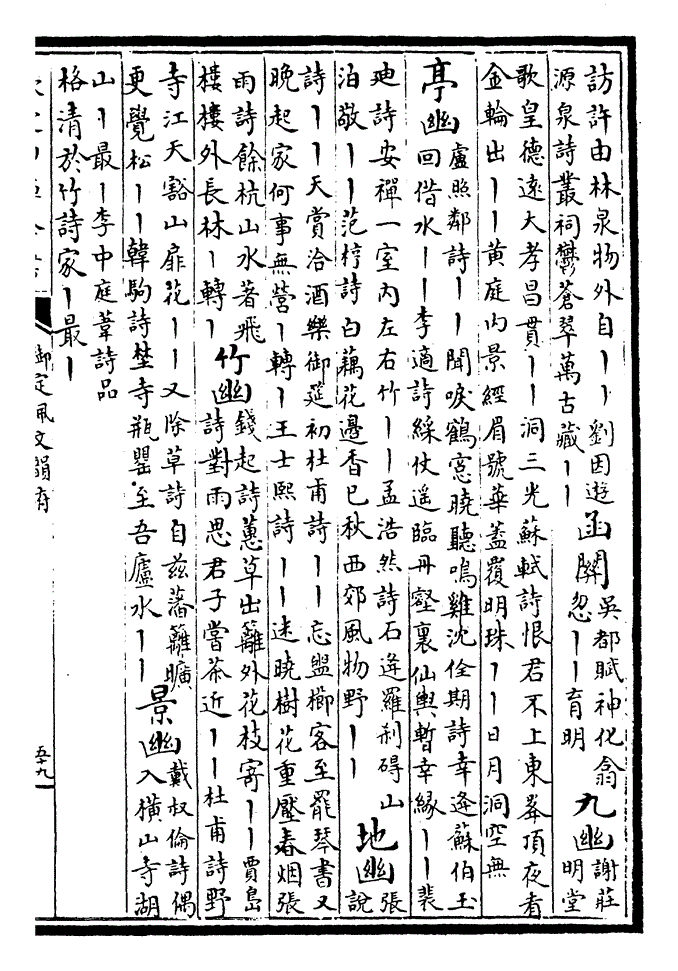 訪許由林泉物外自丨丨劉因遊
源泉詩叢祠鬱蒼翠萬古藏丨丨
函關
吳都賦神化翕
忽丨丨育明
九幽
謝莊
明堂
歌皇德遠大孝昌貫丨丨洞三光蘇軾詩恨君不上東峯頂夜看
金輪出丨丨黃庭內景經眉號華蓋覆明珠丨丨日月洞空無
亭幽
盧照鄰詩丨丨聞唳鶴窓曉聽鳴雞沈佺期詩幸逢蘇伯玉
回借水丨丨李適詩綵仗遙臨丹壑裏仙輿暫幸緣丨丨裴
廸詩安禪一室內左右竹丨丨孟浩然詩石逢羅刹礙山
泊敬丨丨范梈詩白藕花邊香已秋西郊風物野丨丨
地幽
張
說
詩丨丨天賞洽酒樂御筵初杜甫詩丨丨忘盥櫛客至罷琴書又
晚起家何事無營丨轉丨王士熙詩丨丨迷曉樹花重壓春烟張
雨詩餘杭山水著飛
樓樓外長林丨轉丨
竹幽
錢起詩蕙草出籬外花枝寄丨丨賈島
詩對雨思君子嘗茶近丨丨杜甫詩野
寺江天豁山扉花丨丨又除草詩自兹藩籬曠
更覺松丨丨韓駒詩埜寺瓶罌至吾廬水丨丨
景幽
戴叔倫詩偶
入橫山寺湖
山丨最丨李中庭葦詩品
格清於竹詩家丨最丨
御定佩文韻府